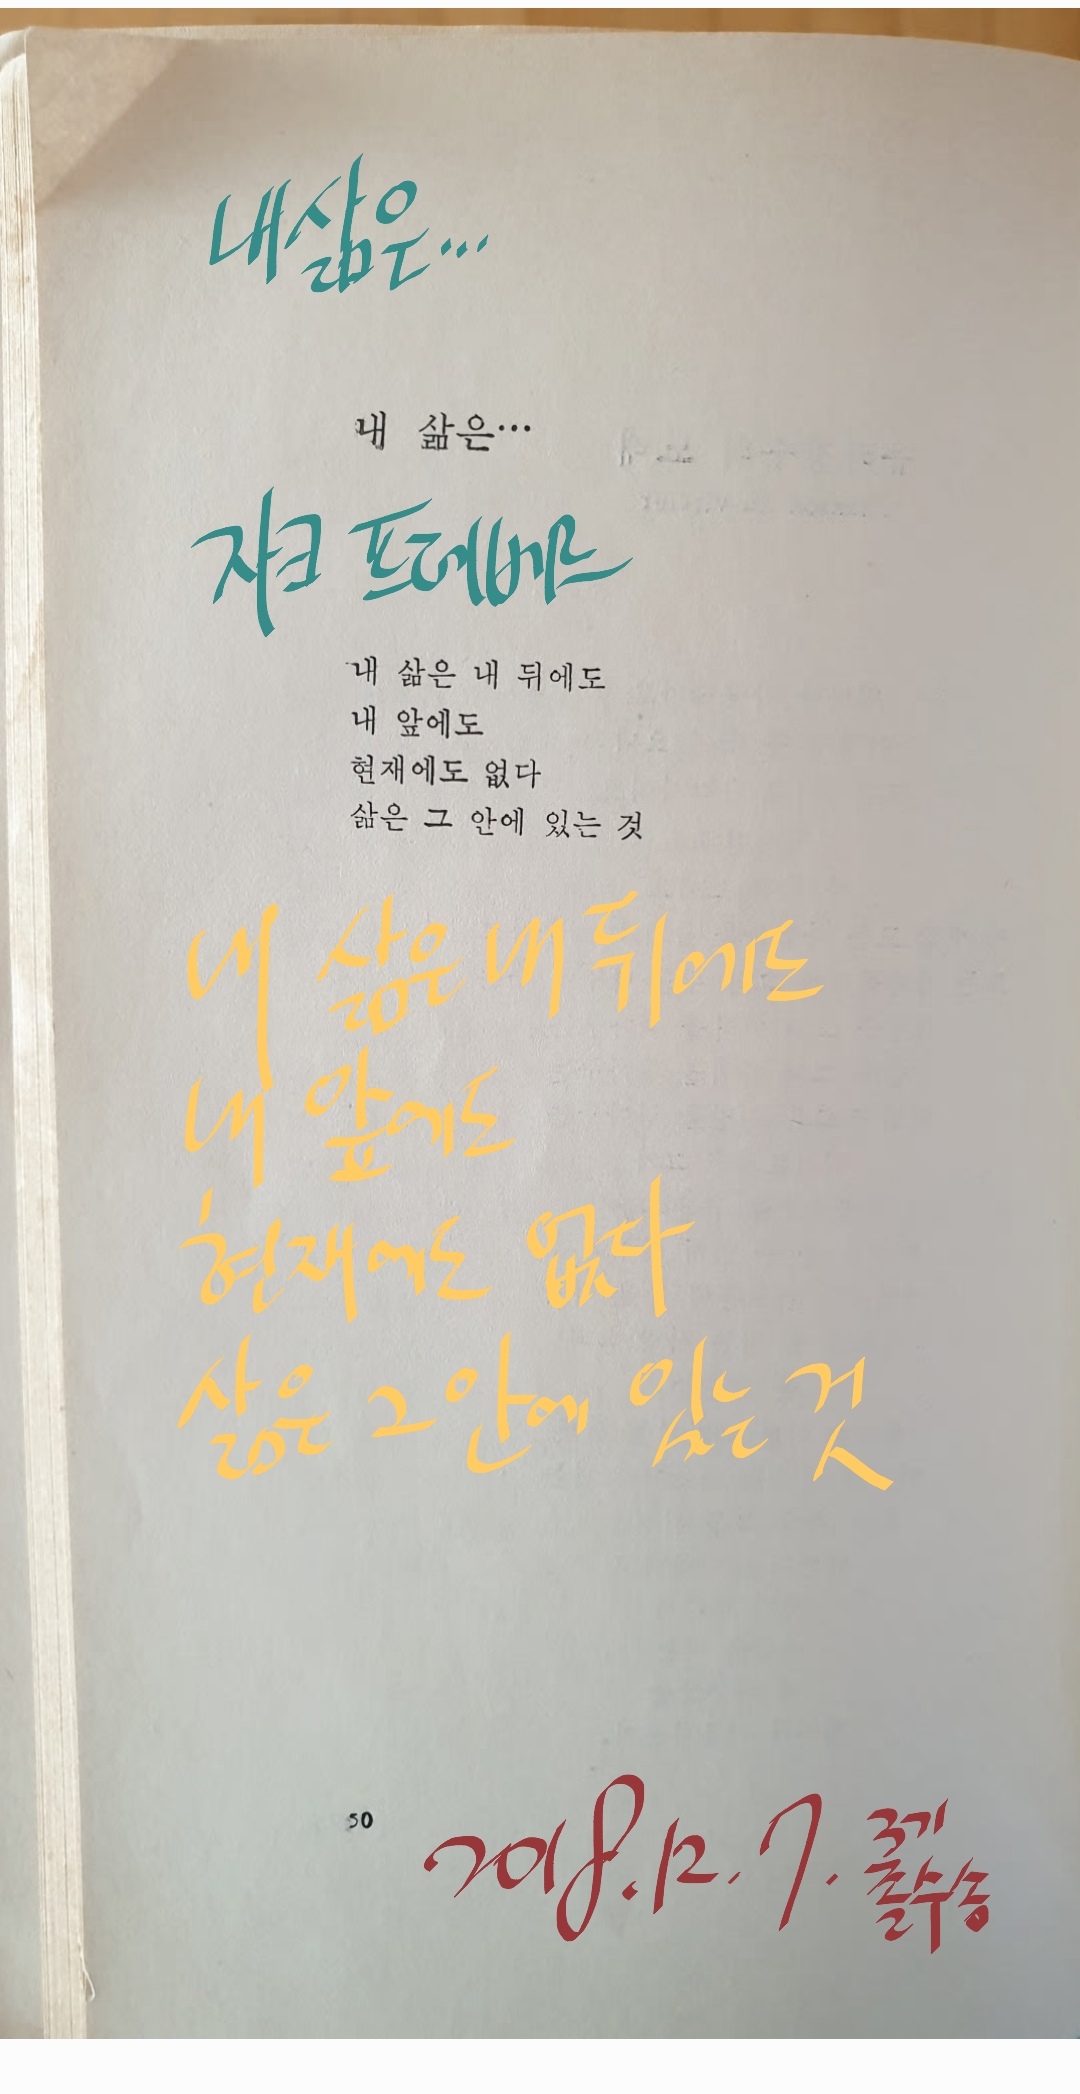 내 삶은...
내 삶은…
자크 프레베르
내 삶은 내 뒤에도
내 앞에도
현재에도 없다
삶은 그 안에 있는 것
내 삶은 내 뒤에도
내 앞에도
현재에도 없다
삶은 그 안에 있는 것
50
2018.12.7.